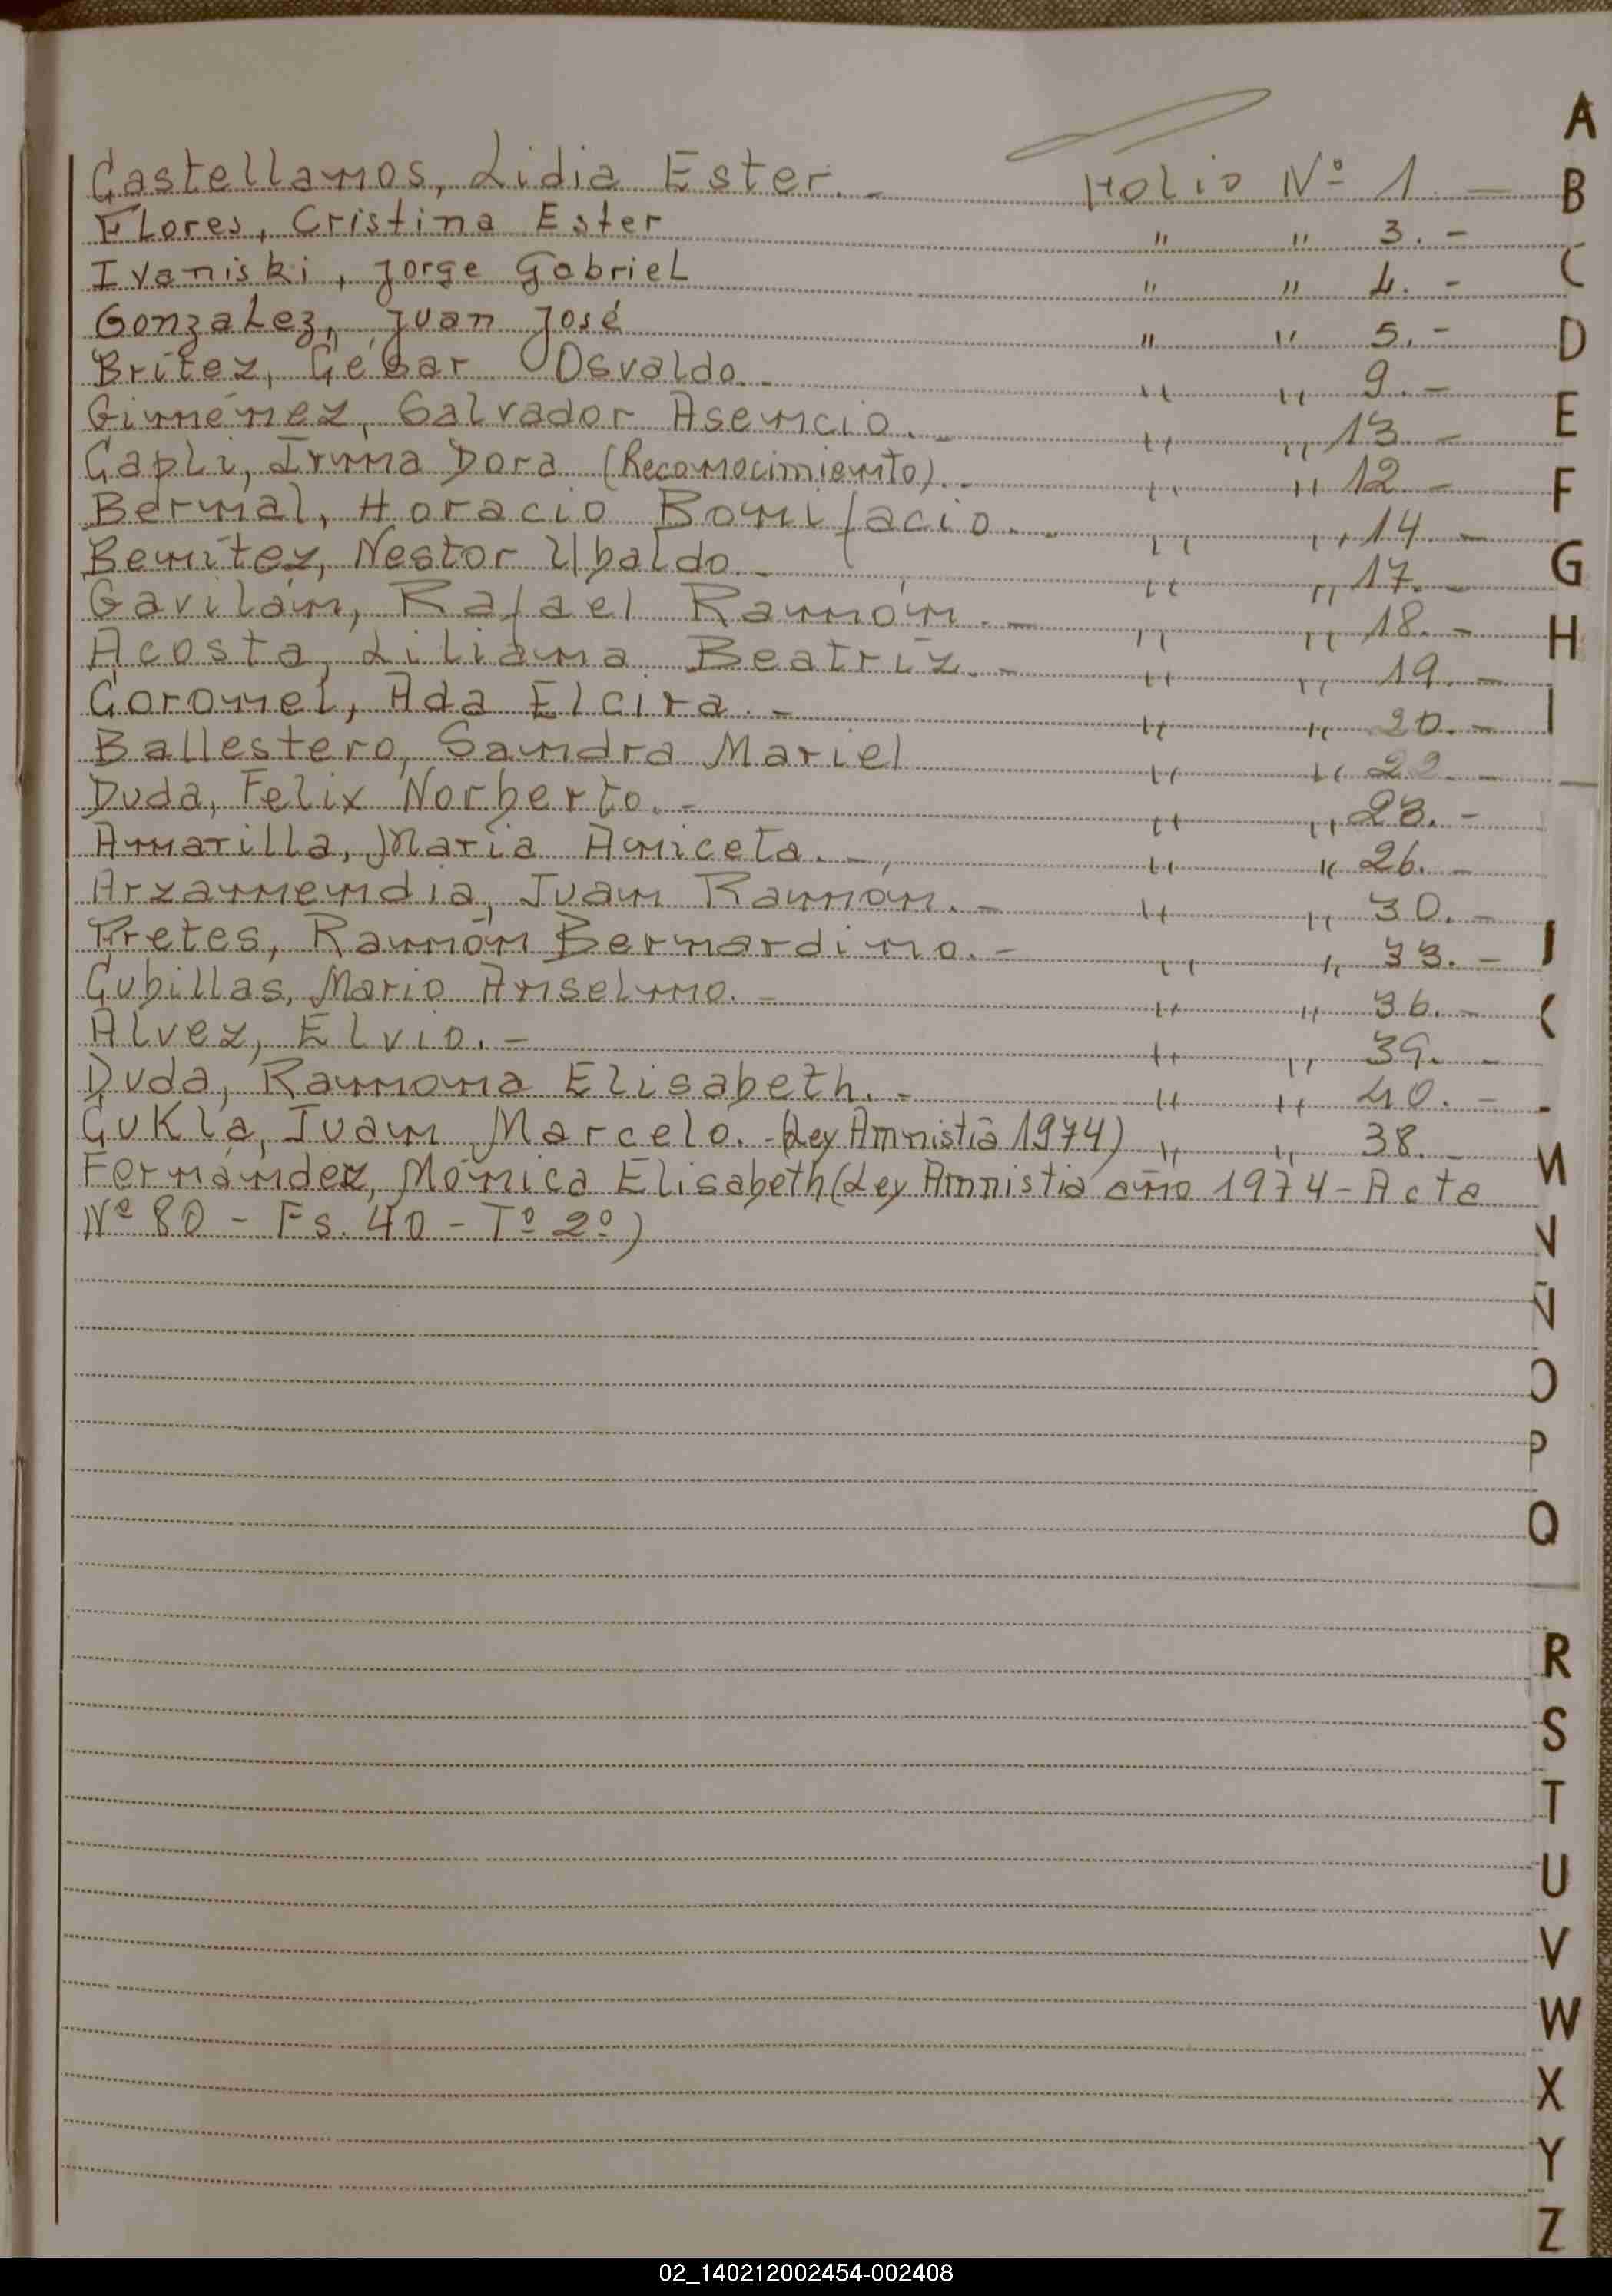 Castellanos, Lidia Ester.- Folio Nº 1.-
Flores, Cristina Ester " " 3.-
Ivaniski, Jorge Gabriel " " 4.-
Gonzalez, Juan José " " 5.-
Brítez, César Osvaldo.- " " 9.-
Giménez, Salvador Asencio.- " " 13.-
Capli, Irma Dora (Reconocimiento).- " " 12.-
Bernal, Horacio Bonifacio.- " " 14.-
Benítez, Nestor Ubaldo.- " " 17.-
Gavilán, Rafael Ramón.- " " 18.-
Acosta, Liliana Beatríz.- " " 19.-
Coronel, Ada Elcira.- " " 20.-
Ballestero, Sandra Mariel " " 22.-
Duda, Felix Norberto.- " " 23.-
Amarilla, María Aniceta.- " " 26.-
Arzamendia, Juan Ramón.- " " 30.-
Pretes, Ramón Bernardino.- " " 33.-
Cubillas, Mario Anselmo.- " " 36.-
Alvez, Elvio.- " " 39.-
Duda, Ramona Elisabeth.- " " 40.-
Cukla, Juan Marcelo.- (Ley Amnistía 1974) " " 38.-
Fernández, Mónica Elisabeth (Ley Amnistia año 1974 - Acta
Nº 80 - Fs. 40 - Tº 2º)
A
B
C
D
E
F
G
H
I
J
K
M
N
Ñ
O
P
Q
R
S
T
U
V
W
X
Y
Z
02_140212002454-002408